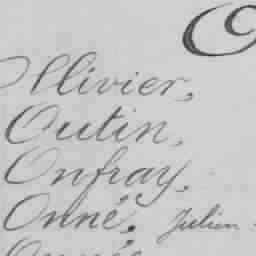 O
Ollivier,
Outin,
Onfray,
Onné, Julien